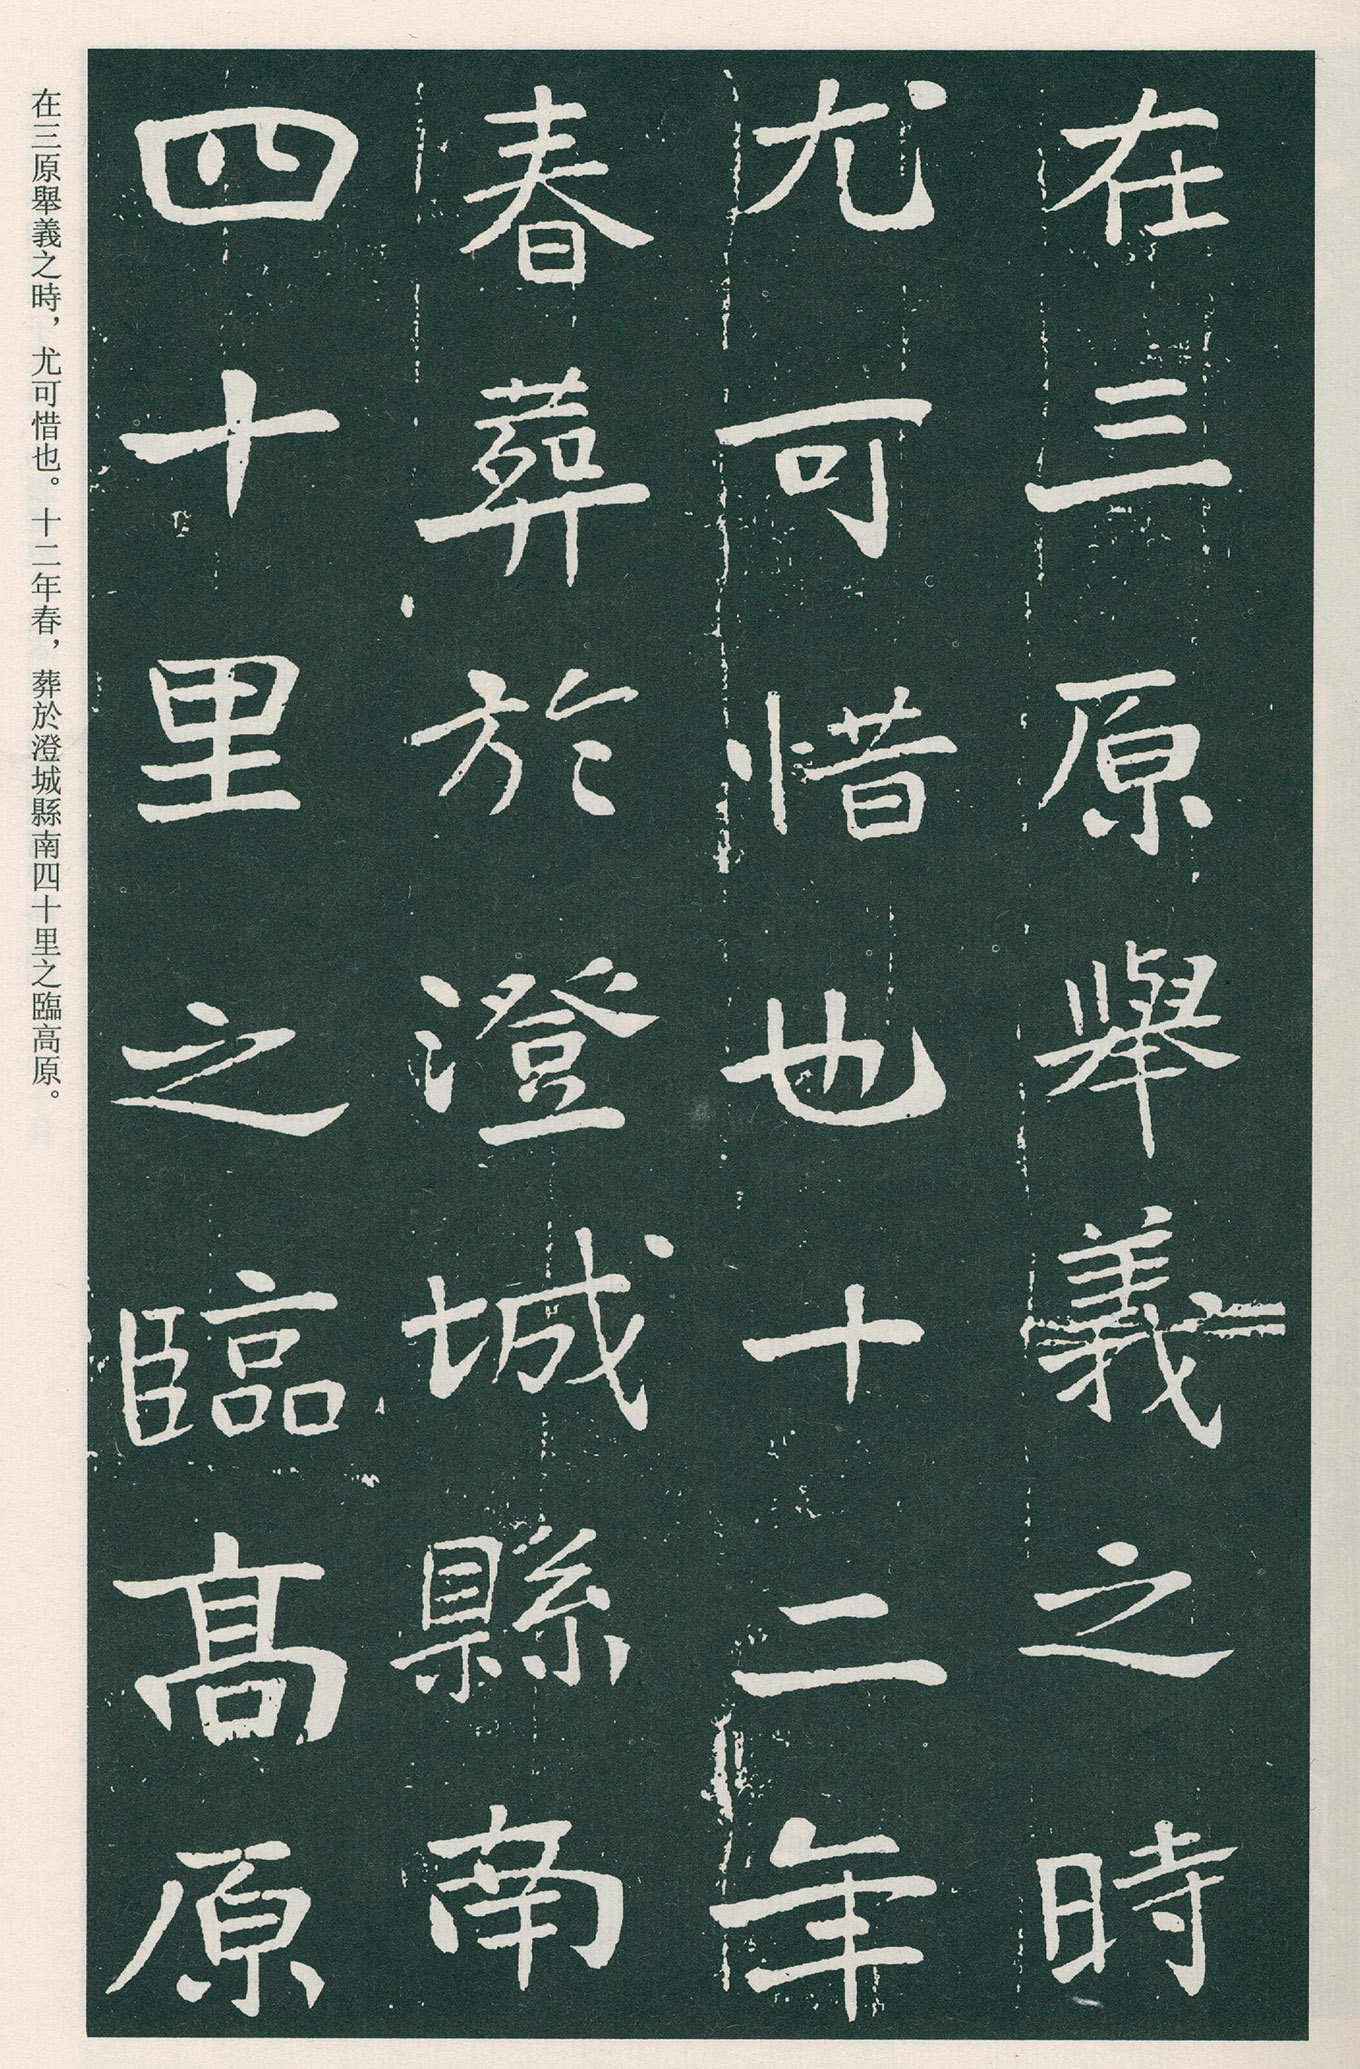 在三原舉義之時
尤可惜也十二年
春葬於澄城縣南
四十里之臨高原
在三原舉義之時，尤可惜也。十二年春，葬於澄城縣南四十里之臨高原。